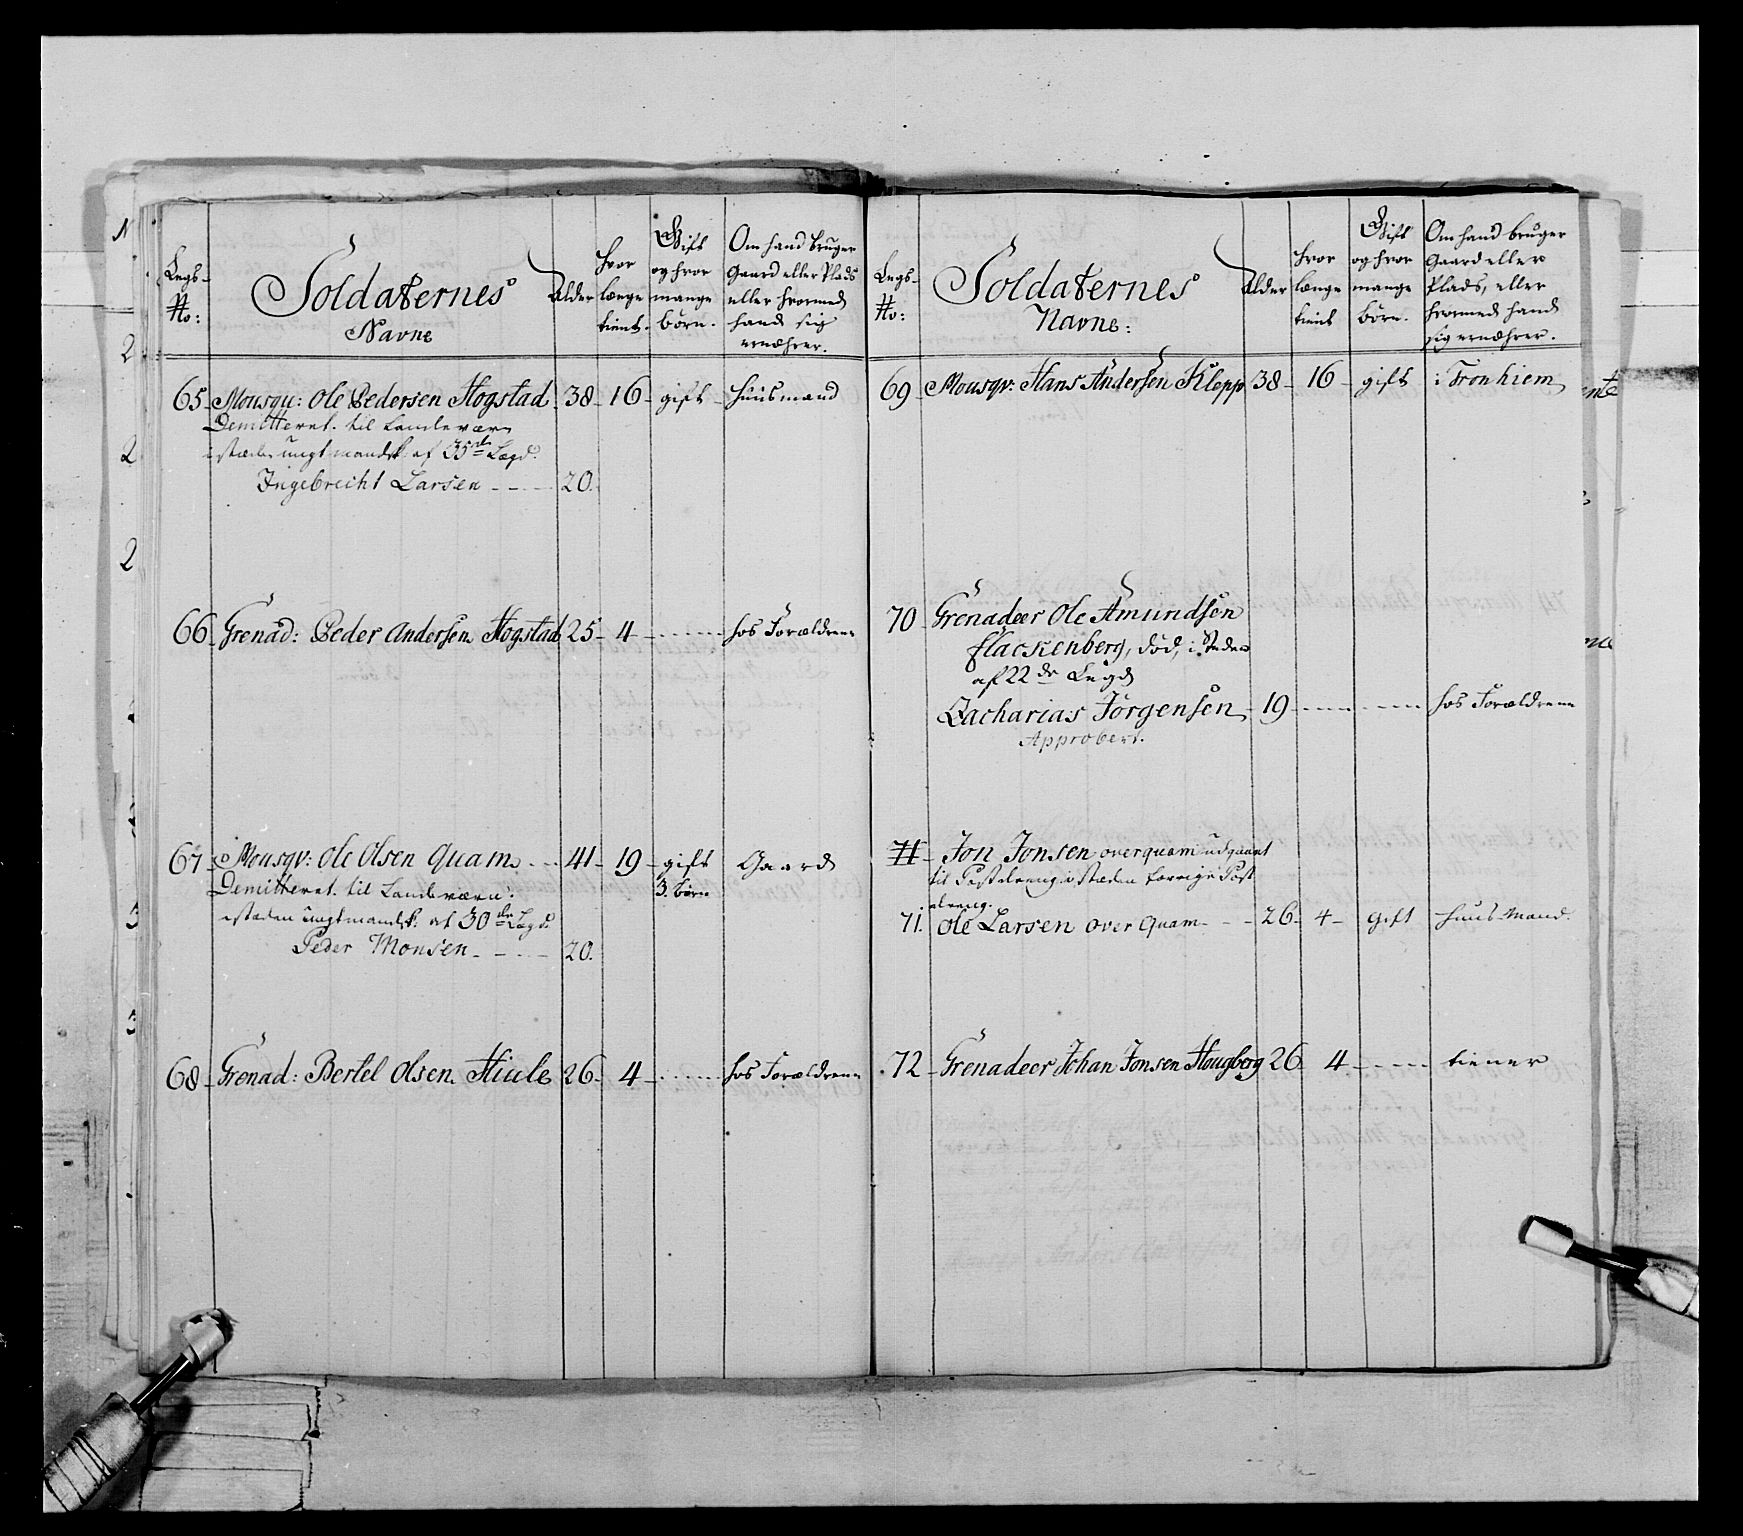 Legs-
No:
Soldaternes
Navne
Alder
hvor
længe
tient.
Gift
og hvor
mange
börn.
Om hand bruger
Gaard eller Plads
eller hvormed
hand sig
ernæhrer.
65 Mousqu: Ole Pedersen Hogstad 38 16 gift huusmand
Demitteret til Landeværn
istæden ungt mandsk: af 35de Lægd:
Ingebrecht Larsen 20.
66 Grenad: Peder Andersen Hogstad 25 4 hos Forældrene
67 Mousqv: Ole Olsen Quam 41 19 gift Gaard
3. börn
Demitteret til Landeværn:
istæden ungt mandsk: af 30de Lægd:
Peder Monsen 20.
68 Grenad: Bertel Olsen Hiule 26 4 hos Forældrene
Legs-
No:
Soldaternes
Navne:
Alder
hvor
længe
tient
Gift
og hvor
mange
börn.
Om hand bruger
Gaard eller
Plads, eller
hvormed hand
sig ernæhrer.
69 Mousqv: Hans Andersen Klepp 38 16 gift i Tronhiem
70 Grenadeer Ole Amundsen
flackenberg, död, i Steden
af 22de Legd
Zacharias Jörgensen 19 hos Forældrene
Approbert.
71 Jon Jonsen overquam udgaaet
til Postdreng istæden forrige Post
dreng.
71. Ole Larsen over Quam 26 4 gift huus Mand.
72 Grenadeer Johan Jonsen Hougberg 26 4 tiener